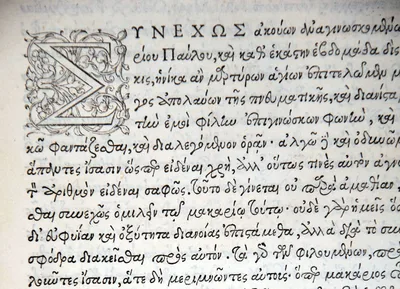 ΣΥΝΕΧΩΣ ἀκούων ἀναγινωσκομένων
ρίου Παύλου, καὶ καθ' ἑκάστην ἑβδομάδα δὶς
κις, ἡνίκα ἂν μαρτύρων ἁγίων ἐπιτελῶμεν μν
γος ἀπολαύων τῆς πνευματικῆς, καὶ διανίστα
τὴν ἐμοὶ φίλην ἐπιγινώσκων φωνὴν, καὶ
κῶ φαντάζεσθαι, καὶ διαλεγόμενον ὁρᾶν. ἀλγῶ δὲ καὶ ὀδυνῶμ
ἅπαντες ἴσασιν ὥσπερ εἰδέναι χρὴ, ἀλλ' οὕτως τινὲς αὐτὸν ἀγνο
τὸν ἀριθμὸν εἰδέναι σαφῶς. τοῦτο δὲ γίνεται οὐ παρὰ ἀμαθίαν,
σθαι συνεχῶς ὁμιλεῖν τῷ μακαρίῳ τούτῳ. οὐδὲ γὰρ ἡμεῖς ὅσ
δι' εὐφυΐαν καὶ ὀξύτητα διανοίας ἐπιστάμεθα, ἀλλὰ διὰ τὸ συν
σφόδρα διακεῖσθαι πρὸς αὐτόν. τὰ γὰρ τῶν φιλουμένων, πρὸ τ
λοῦντες ἴσασιν, ἅτε δὴ μεριμνῶντες αὐτούς. ὅπερ μακάριος